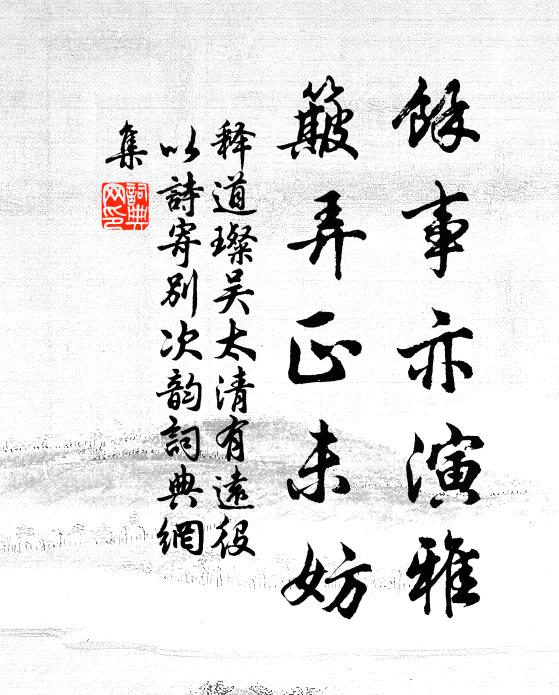 餘事亦演雅
簸弄正未妨
释道璨吴太清有遠役
以詩寄别次韵詞典網
集
詞典
网印